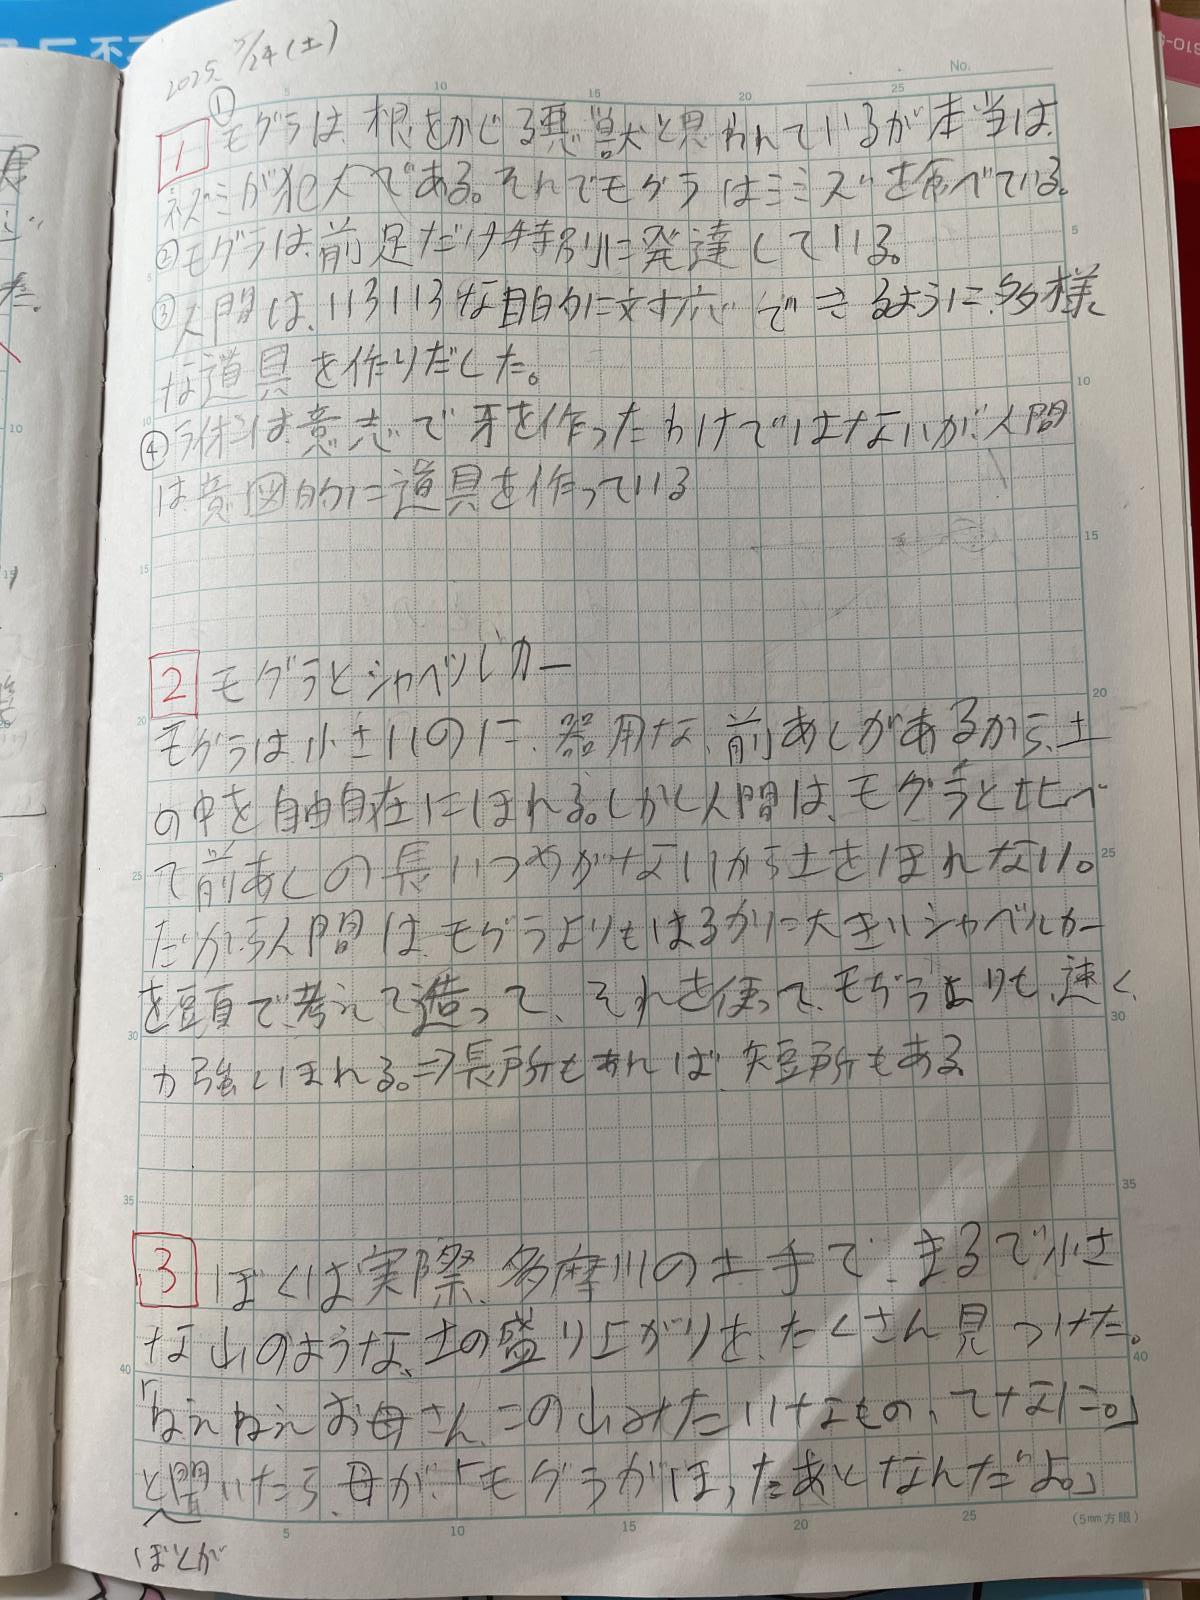 2025. 5/24(土)
1 ①モグラは、根をかじる悪獣と思われているが本当は、
ネズミが犯人である。それでモグラはミミズを食べている。
②モグラは、前足だけ特別に発達している。
③人間は、いろいろな目的に対応できるように、多様
な道具を作りだした。
④ライオンは意志で牙を作ったわけではないが、人間
は意図的に道具を作っている
2 モグラとシャベルカー
モグラは小さいのに、器用な、前あしがあるから、土
の中を自由自在にほれる。しかし人間は、モグラと比べ
て前あしの長いつめがないから土をほれない。
だから人間は、モグラよりもはるかに大きいシャベルカー
を頭で、考えて造って、それを使って、モグラよりも、速く、
力強くほれる。⇒長所もあれば、短所もある
3 ぼくは実際、多摩川の土手で、まるで小さ
な山のような、土の盛り上がりを、たくさん見つけた。
「ねえねえお母さん、この山みたいなもの、てなに。」
と聞いたら、母が、「モグラがほったあとなんだよ。」
ぼくが
No.
5 10 15 20 25
5
10
15
20
25
30
35
40
5 10 15 20 25 (5mm方眼)